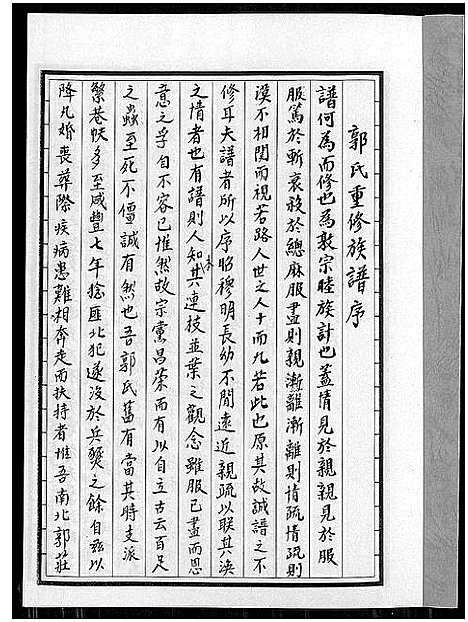 郭氏重修族譜序
譜何為而修也為敦宗睦族計也蓋情見於親親見於服
服篤於斬衰殺於緦麻服盡則親漸離漸離則情疏情疏則
漠不相関而視若路人世之人十而九若此也原其故誠譜之不
修耳夫譜者所以序昭穆明長幼不間遠近親疏以联其渙
之情者也有譜則人知其連枝並葉之觀念雖服已盡而恩
意之孚自不容已惟然故宗黨昌荣而有以自立古云百足
之蟲至死不僵誠有然也吾郭氏舊有當其時支派
繁巷帙多至咸豐七年捻匪北犯遂没於兵燹之餘自兹以
降凡婚喪葬際疾病患難相奔走而扶持者惟吾南北郭莊